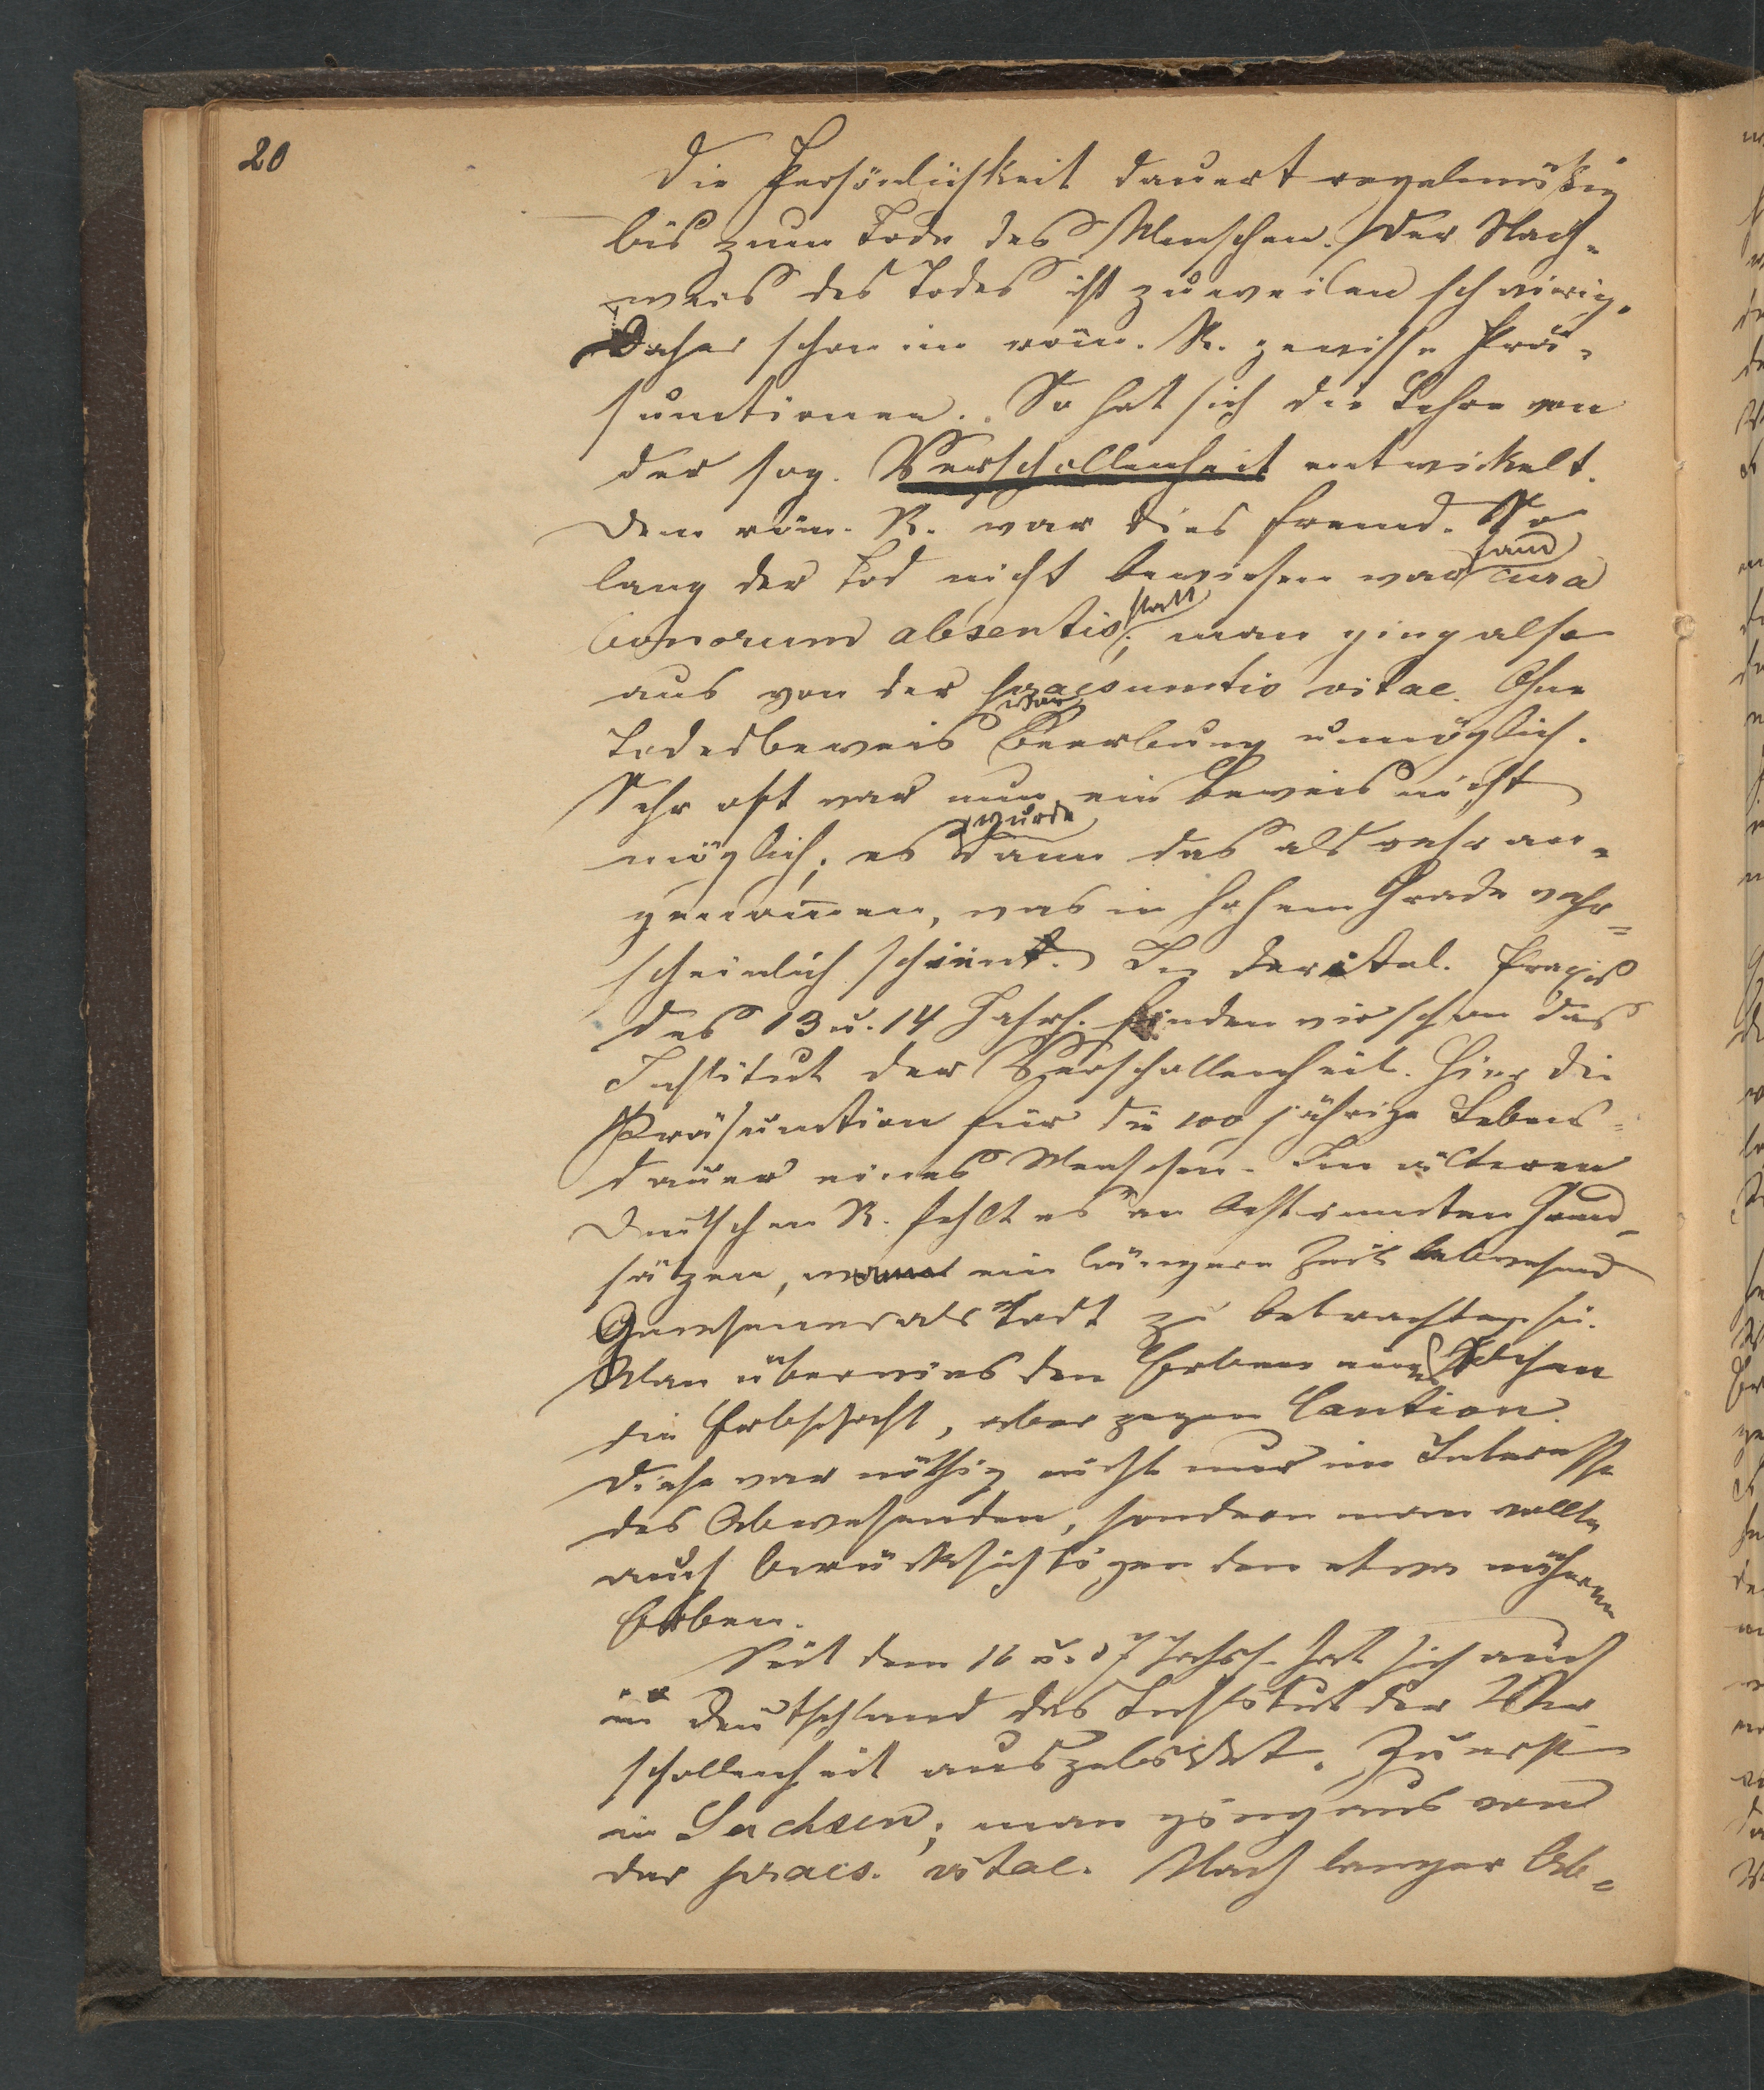 20
Die Persönlichkeit dauert regelmäßig
bis zum Tode des Menschen. Der Nach-
weis des Todes ist zuweilen schwierig.
Daher schon im röm. R. gewisse Prä-
sumtionen. So hat sich die Lehre von
der sog. Verschollenheit entwickelt.
Dem röm. R. war dies fremd. So
lang der Tod nicht bewiesen war fand cura
bonorum absentis statt; man ging also
aus von der praesumtio vitae. Ohne
Todesbeweis war Beerbung unmöglich.
Sehr oft war nun ein Beweis nicht
möglich; es wurde dann das als wahr an-
genommen, was in hohem Grade wahr-
scheinlich scheint. In der ital. Praxis
des 13 u. 14 Jahrh. finden wir schon das
Institut der Verschollenheit. Hier die
Präsumtion für die 100 jährige Lebens-
dauer eines Menschen. Im älteren
Deutschen R. fehlt es an bestimmten Grund-
sätzen, wann ein längere Zeit abwesend
Gewesener als todt zu betrachten sei.
Man überwies den Erben eines solchen
die Erbschaft, aber gegen Caution.
Diese war nöthig nicht nur im Interesse
des Abwesenden, sondern man wollte
auch berücksichtigen den etwa näheren
Erben.
Seit dem 16 u. 17 Jahrh. hat sich auch
in Deutschland das Institut der Ver-
schollenheit ausgebildet. Zuerst
in Sachsen; man ging aus von
der praes. vitae. Nach langer Ab-